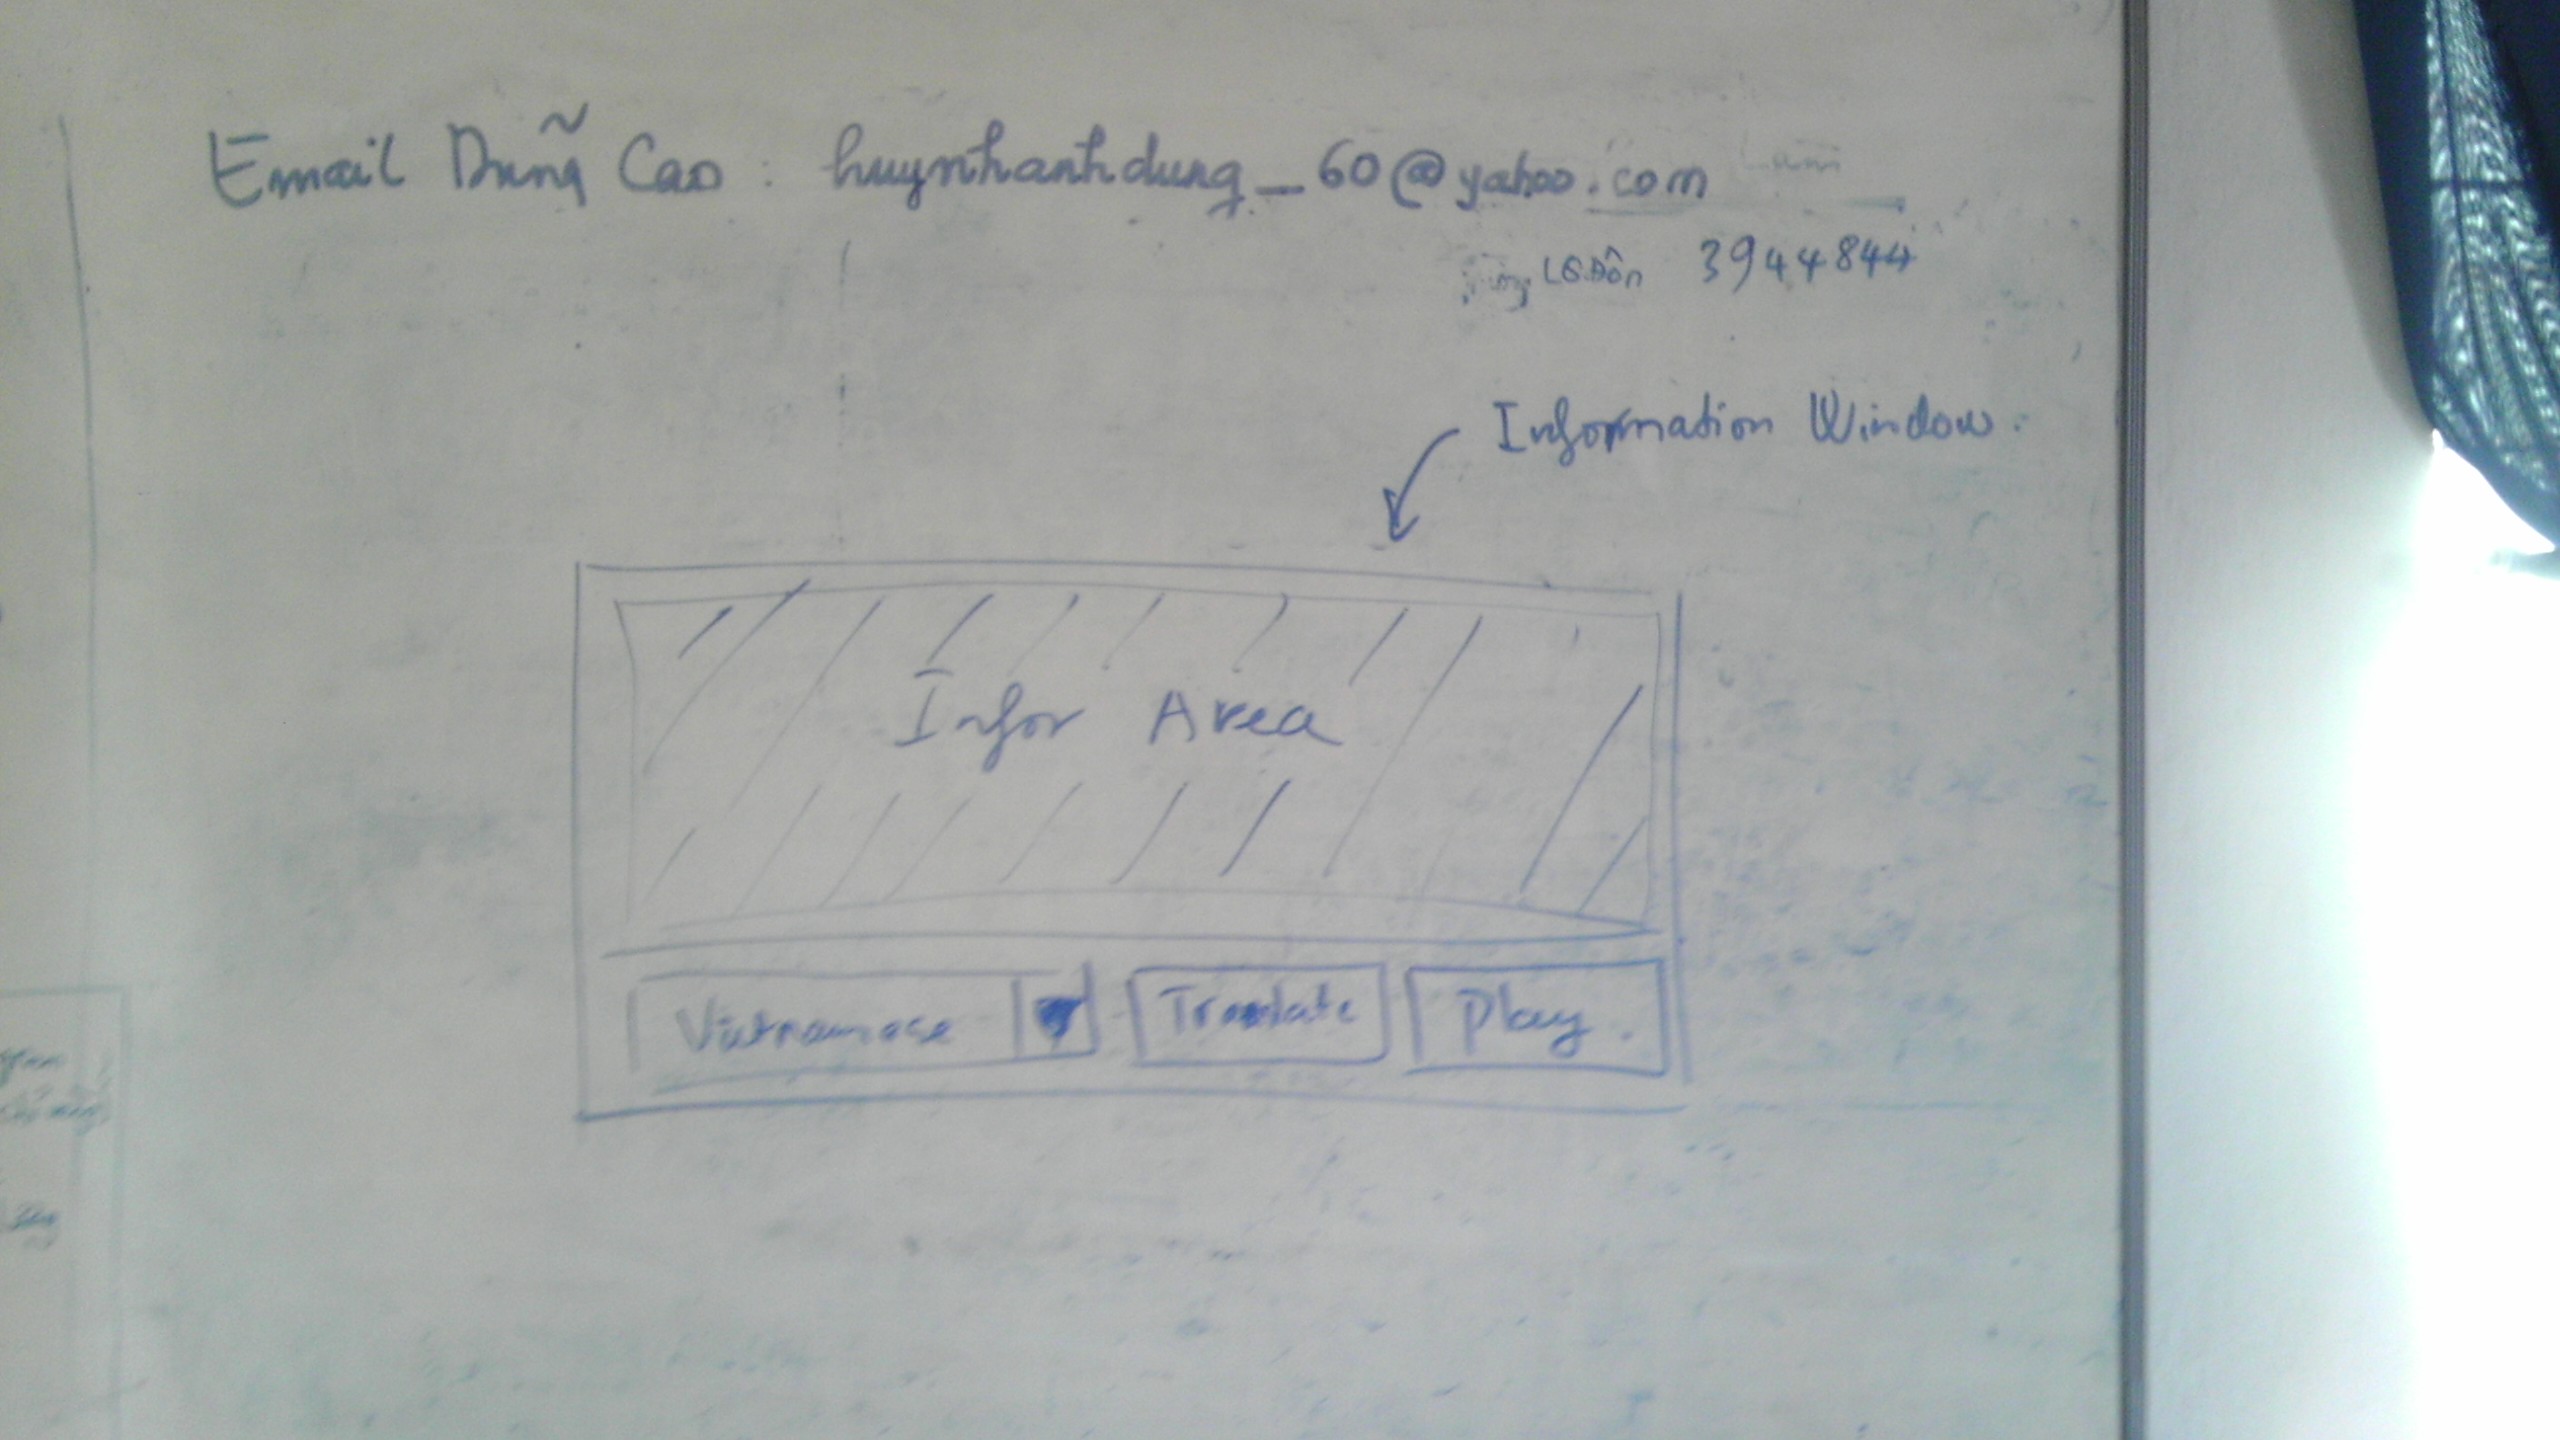 Email Dũng Cao : huynhanhdung_60@yahoo.com
LQ.Đôn 3944844
Information Window.
Infor Area
Vietnamese Translate Play.